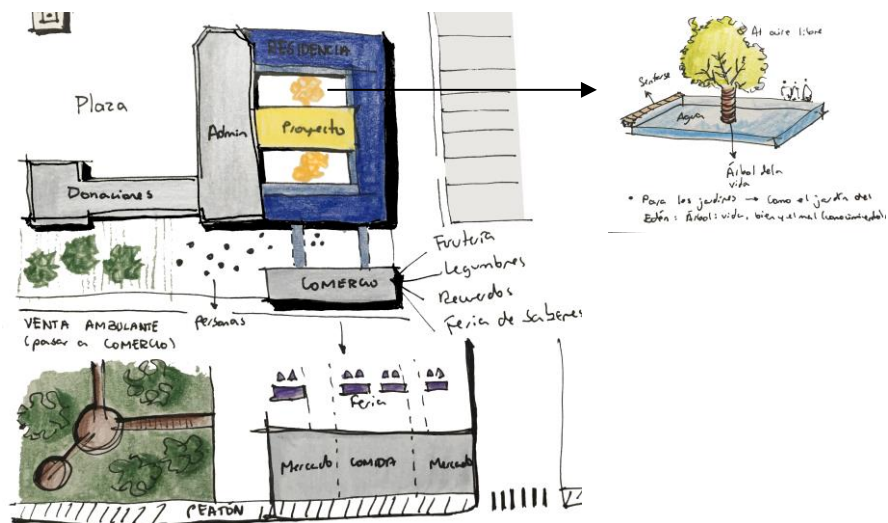 RESIDENCIA
Plaza
Admin
Proyecto
Donaciones
COMERCIO
Frutería
Legumbres
Recuerdos
Feria de Saberes
VENTA AMBULANTE
(pasar a COMERCIO)
Personas
Feria
Mercado
COMIDA
Mercado
PEATÓN
Al aire libre
Sentarse
Agua
Árbol de la
vida
• Para los jardines → Como el jardín del
Edén: Árbol: vida, bien y el mal (conocimiento)